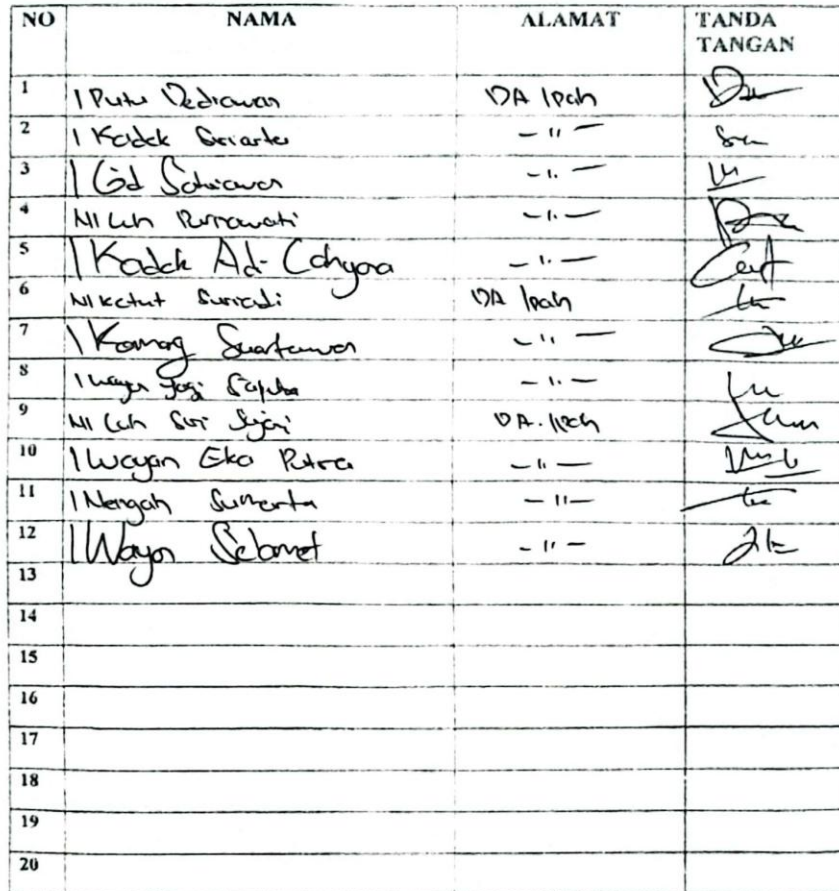 NO NAMA ALAMAT TANDA TANGAN
1 I Putu Dediawan DA Ipah
2 I Kadek Suriarta -〃-
3 I Gd Satriawan -〃-
4 NI Luh Purnawati -〃-
5 I Kadek Adi Cahyana -〃-
6 NI Ketut Suriadi DA Ipah
7 I Komang Suartawan -〃-
8 I Wayan Yogi Saputra -〃-
9 NI Luh DA. Ipah
10 I Wayan Eka Putra -〃-
11 I Nengah Sumerta -〃-
12 I Wayan Selamet -〃-
13
14
15
16
17
18
19
20